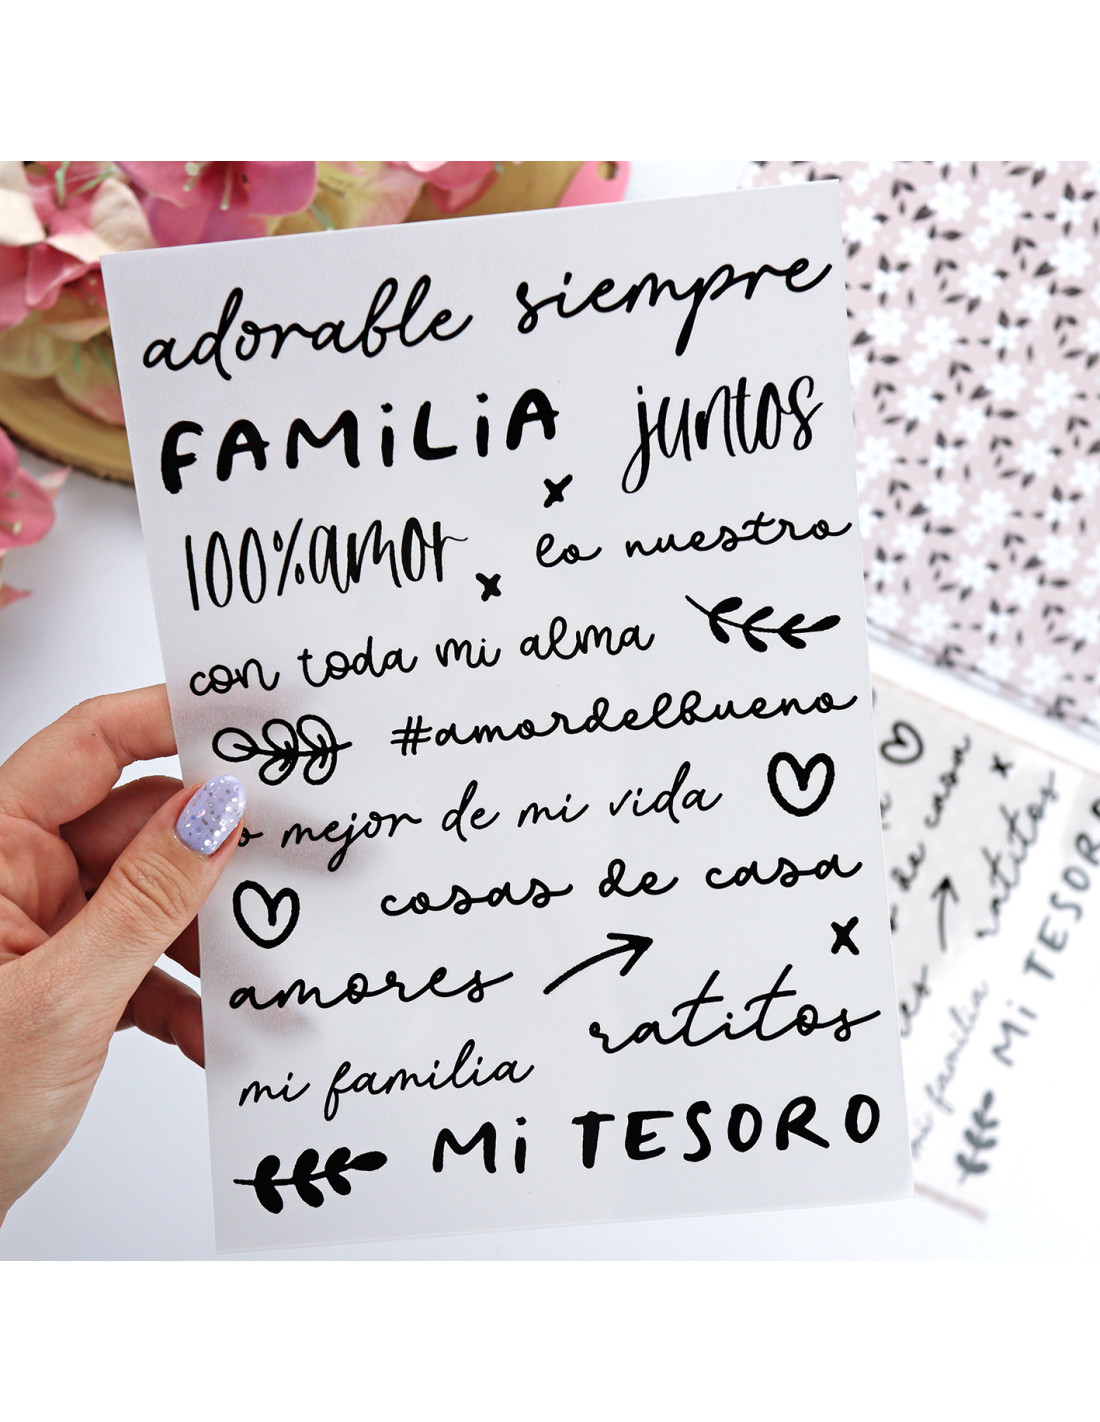 adorable siempre
FAMiLiA juntos
100% amor lo nuestro
con toda mi alma
#amordelbueno
o mejor de mi vida
cosas de casa
amores
ratitos
mi familia
Mi TESORO
de casa
ratitos
mi familia
Mi TESOR